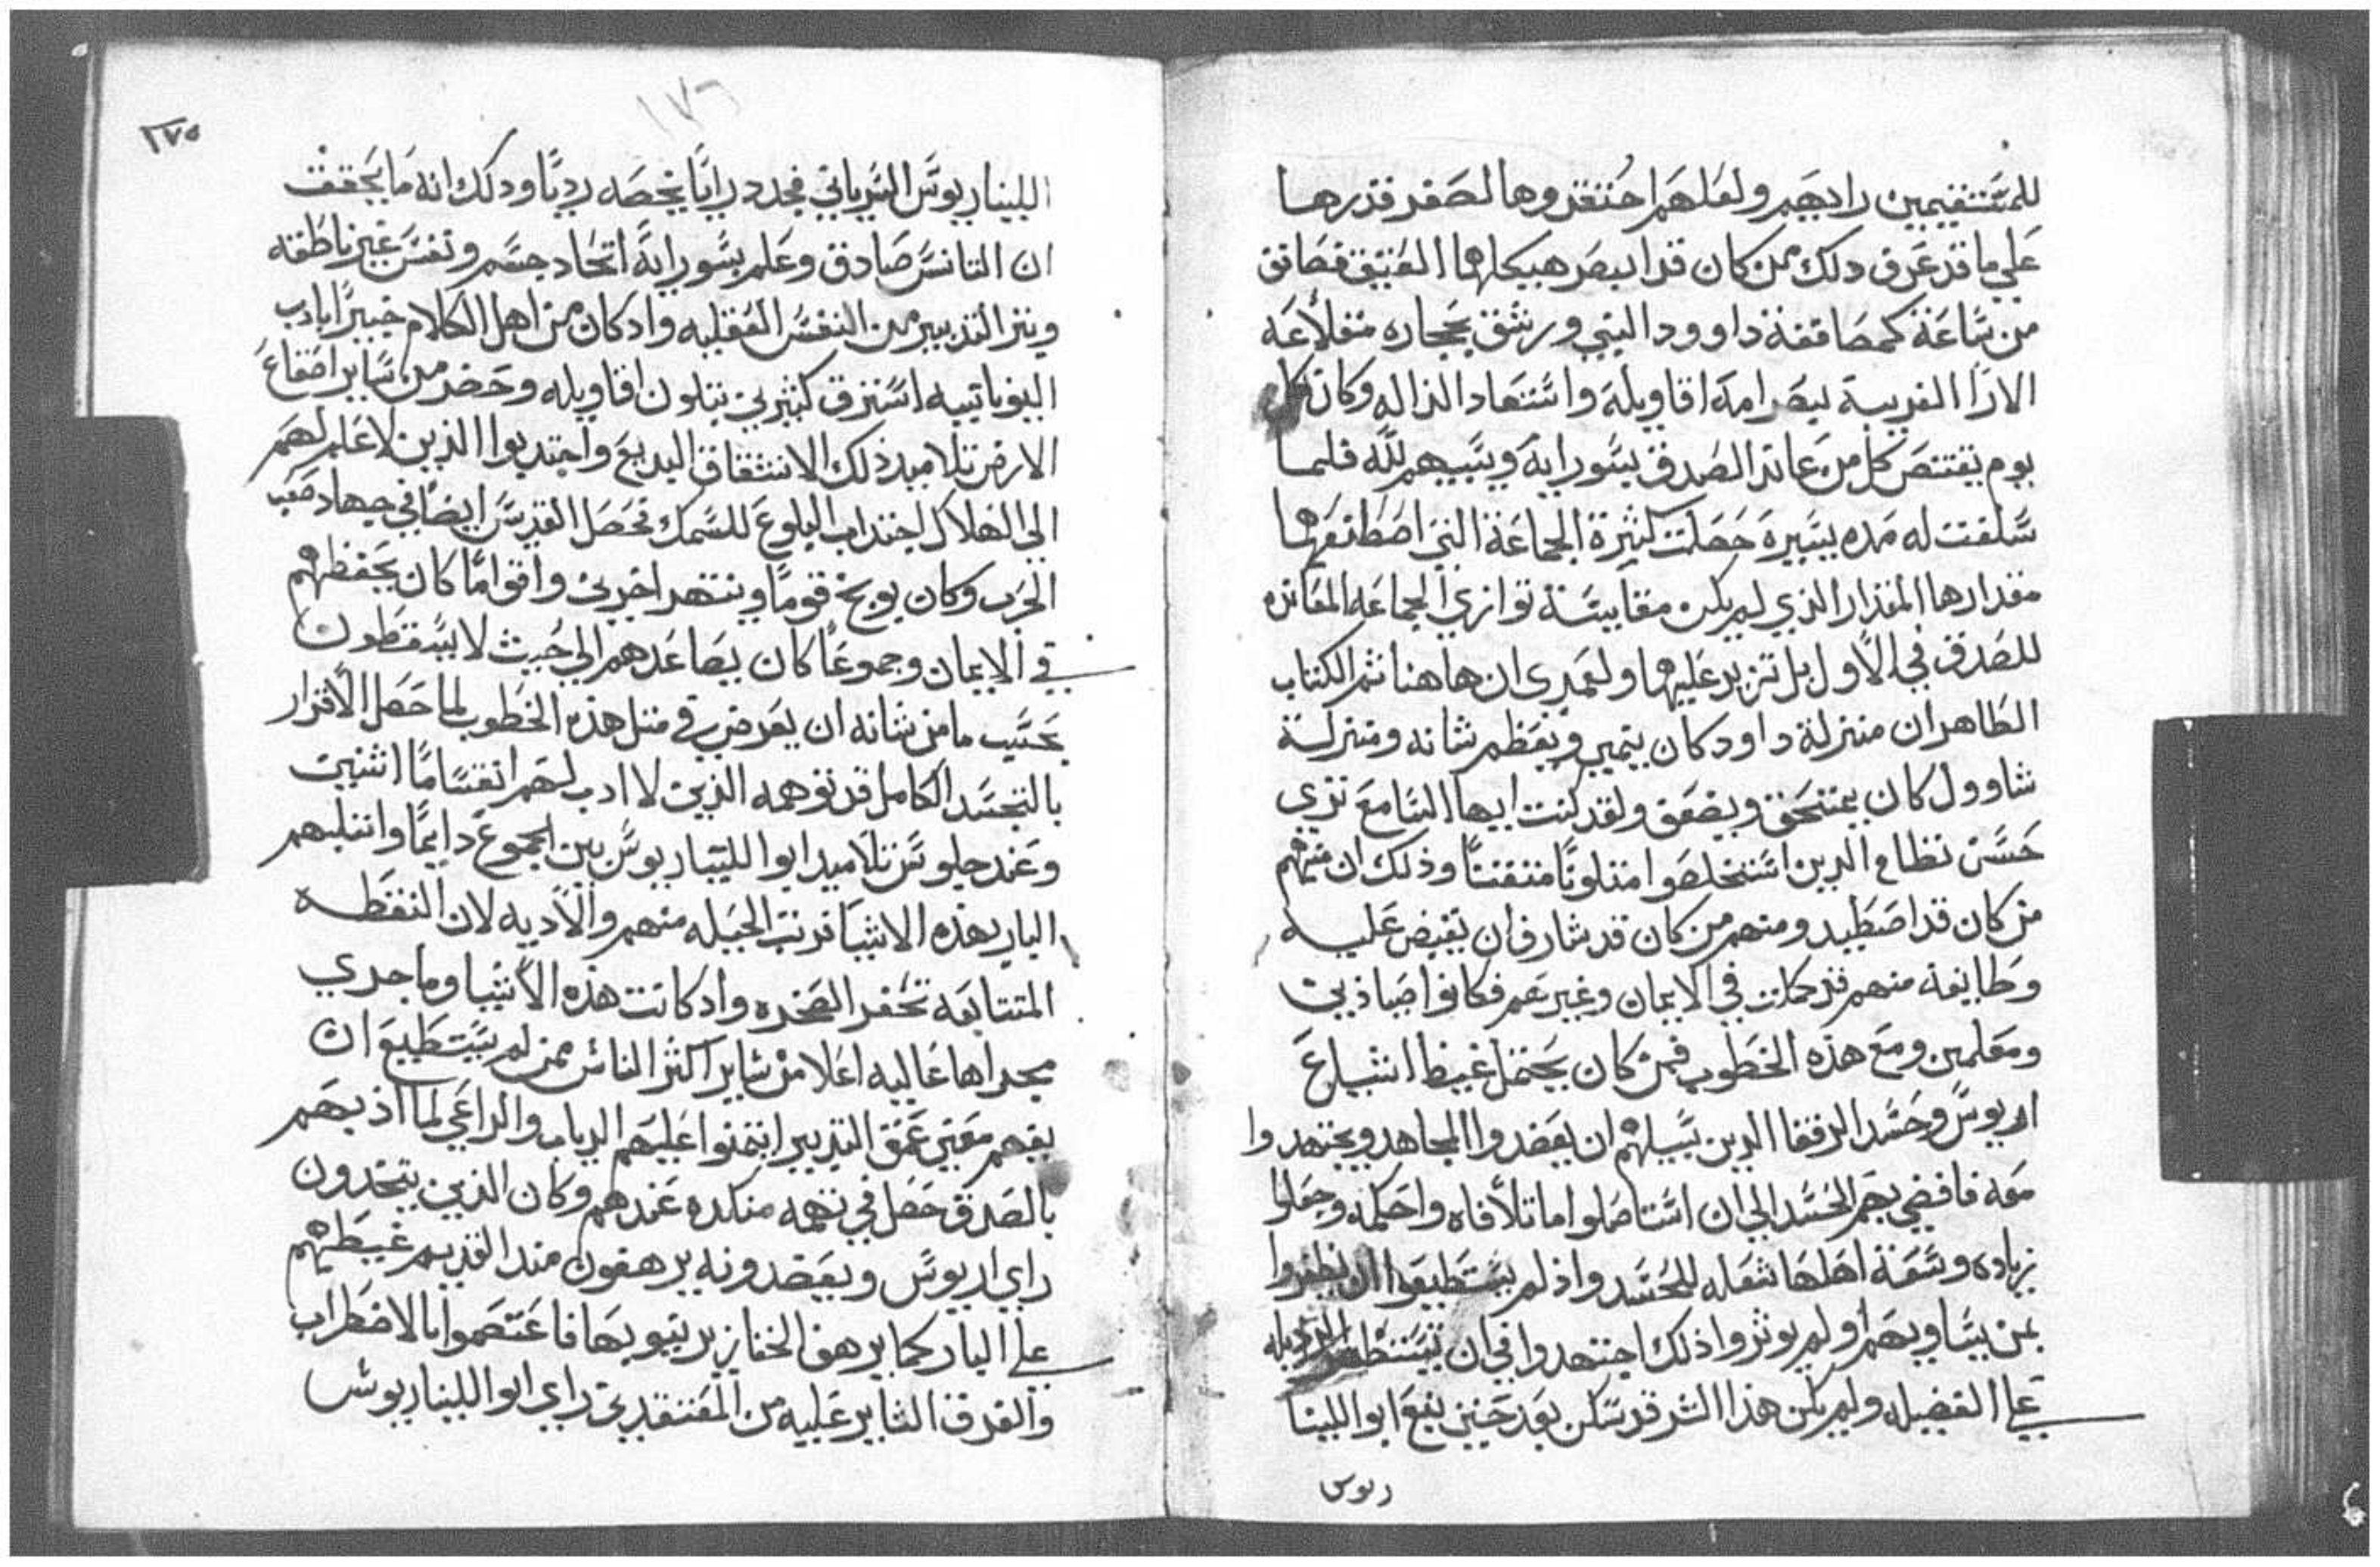 للمستقيمين رايهم ولعلهم احتقروها لصغر قدرها
علي ما قد عرف ذلك ممن كان قد ابصر هيكلهما العتيق فصاتق
من ساعته كمصاففة داوود النبي ورشق بحجاره مقلاعه
الارا الغريبة بصرامة اقاويله واستعاد الزاله وكان كل
يوم يقتنص كل من عاند الصدق بسو رايه ويسبيهم لله فلما
سلفت له مده يسيره حصلت كثيرة الجماعة التي اصطنعها
مقدارها المقدار الذي لم يكن مقايسة توازي الجماعه المعانده
للصدق في الاول بل تزيد عليها ولعمري ان هاهنا تم الكتاب
الطاهر ان منزلة داود كان يتمير ويعظم شانه ومنزلة
شاوول كان يمتحق ويضعف ولقد كنت ايها السامع تري
حسن نظام الدين استخلصوا متلونا متفننا وذلك ان منهم
من كان قد اصطيد ومنهم من كان قد شارف ان يقبض عليه
وطايفة منهم قد حملت في الايمان وغيرهم فكانوا صيادين
ومعلمين ومع هذه الخطوب فمن كان يحتمل غيظ اشياع
اريوس وحسد الرفقا الدين سبيلهم ان يعضدوا المجاهد ويجتهدوا
معه فافضي بهم الحسد الي ان استاصلوا اما تلافاه واحكمه وجعلوا
زياده وسعة اهلها شعله للحسد واذ لم يستطيعوا ان يظفروا
بمن يساويهم ولم يوثروا ذلك اجتهدوا في ان
علي الفضيله ولم يكن هذا الشر قد سكن بعد حتي نبع ابوالليتا
ريوس
١٧٥
١٧٦
الليناريوس السرياني فجدد رايا يخصه رديا وذلك انه ما يحقق
ان التانس صادق وعلم بسو رايه اتحاد جسم ونفس غير ناطقه
ونتر التدبير من النفس العقليه واذ كان من اهل الكلام خبيرا باداب
اليونانييه استرق كثيرين يتلون اقاويله وحضر من ساير اصقاع
الارض تلاميذ ذلك الانشقاق البديع واجتدبوا الذين لا علم لهم
الي الهلاك اجتداب البلوع للسمك فحصل القديس ايضا في جهاد صعب
الحرب وكان يوبخ قوما وينتهر اخرين واقواما كان يحفظهم
في الايمان وجموعا كان يصاعدهم الي حيث لا يسقطون
بحسب ما من شانه ان يعرض في مثل هذه الخطوب لما حصل الاقرار
بالتجسد الكامل قد توهمه الذين لا ادب لهم انقساما اثنين
وعند جلوس تلاميد ابوالليناريوس بين الجموع دايما وانتليهم
البار بهذه الاشيا قربت الجبله منهم والاديه لان النقطه
المتتابعه تحفر الصخره واذ كانت هذه الاشيا وما جري
مجراها عاليه اعلا من ساير اكثر الناس ممن لم يستطيع ان
يفهم معني عمق التدبير انتمنوا عليهم الدياب والراعي لما اذ بهم
بالصدق حصل في تهمه منكره عندهم وكان الذين يتحدون
راي اريوس ويعضدونه يرهقون مند القديم غيظهم
علي البار كما يرهف الخنازير نيوبها فاعتصموا بالاضطراب
والفرق الثاير عليه من المعتقدين راي ابوالليناريوس